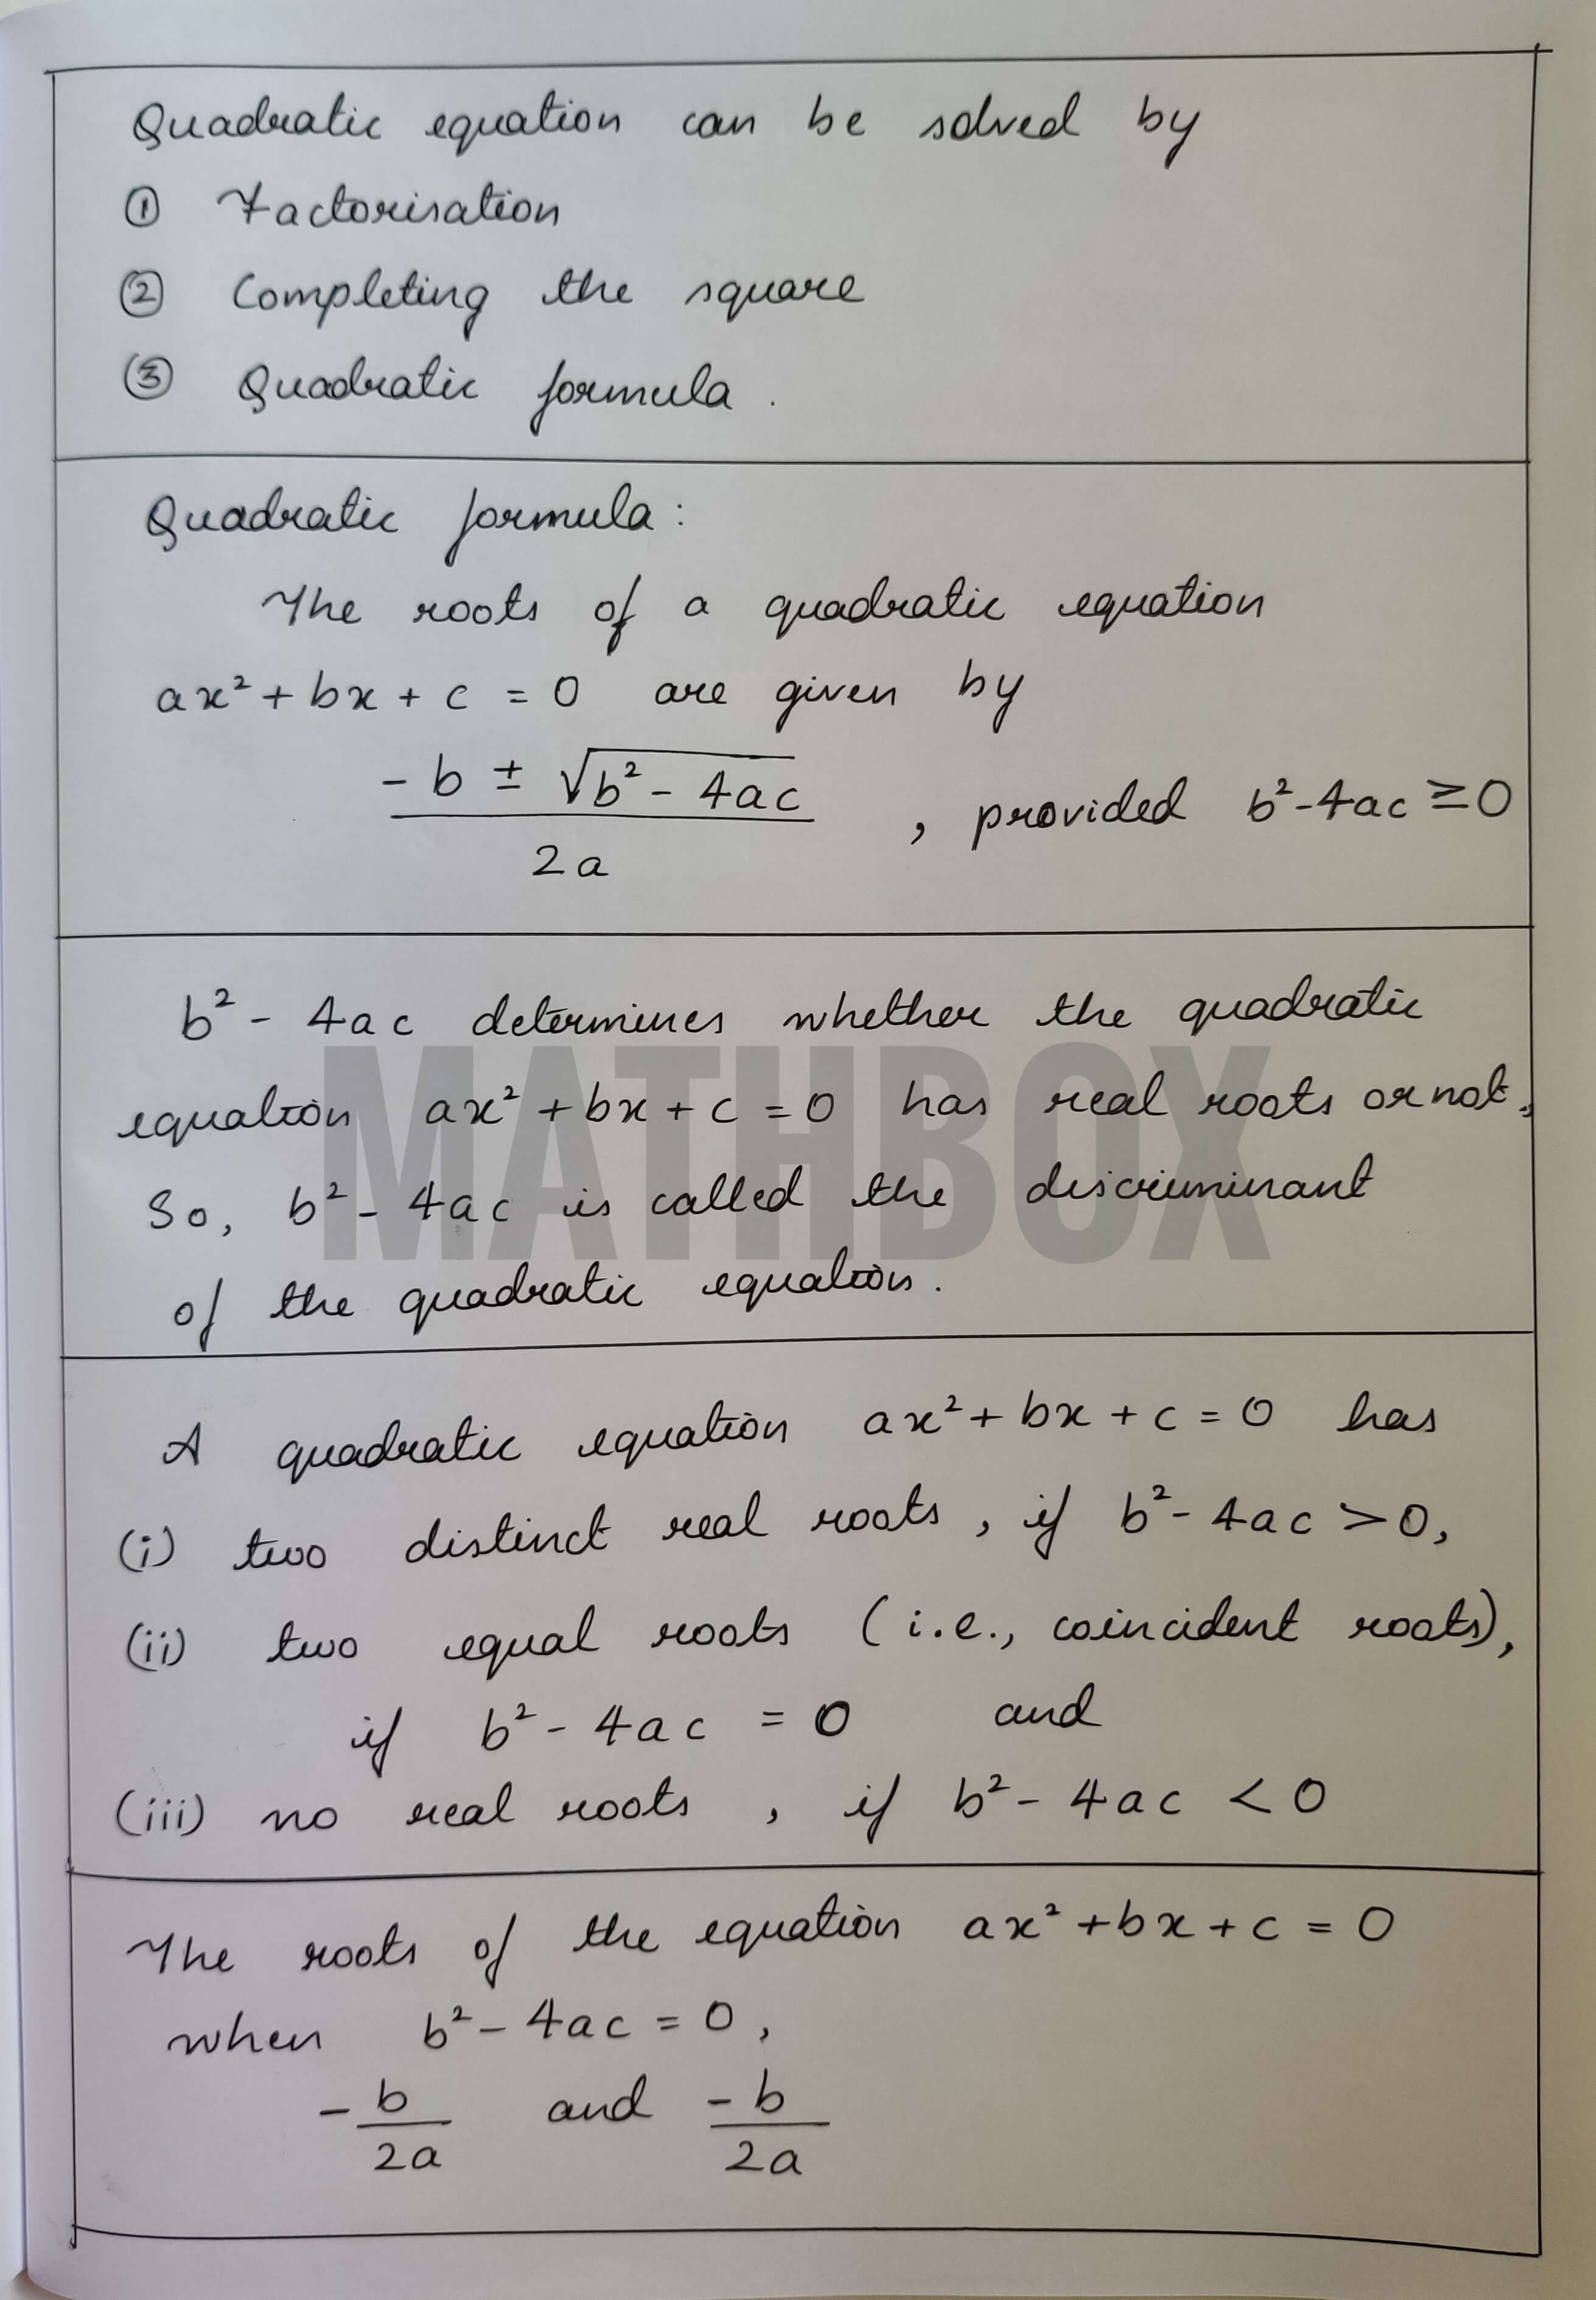 Quadratic equation can be solved by
① Factorisation
② Completing the square
③ Quadratic formula.
Quadratic formula:
The roots of a quadratic equation
ax² + bx + c = 0 are given by
-b ± √(b² - 4ac) / 2a , provided b² - 4ac ≥ 0
b² - 4ac determines whether the quadratic
equation ax² + bx + c = 0 has real roots or not.
So, b² - 4ac is called the discriminant
of the quadratic equation.
MATHBOX
A quadratic equation ax² + bx + c = 0 has
(i) two distinct real roots, if b² - 4ac > 0,
(ii) two equal roots (i.e., coincident roots),
if b² - 4ac = 0 and
(iii) no real roots, if b² - 4ac < 0
The roots of the equation ax² + bx + c = 0
when b² - 4ac = 0,
-b/2a and -b/2a